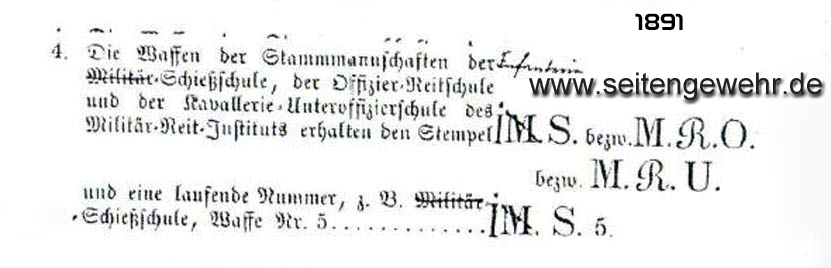 1891
4. Die Waffen der Stammmannschaften der Infanterie
Militär-Schießschule, der Offizier-Reitschule
www.seitengewehr.de
und der Kavallerie-Unteroffizierschule des
Militär-Reit-Instituts erhalten den Stempel I M. S. bezw. M. R. O.
bezw. M. R. U.
und eine laufende Nummer, z. B. Militär-
-Schießschule, Waffe Nr. 5.............I M. S. 5.